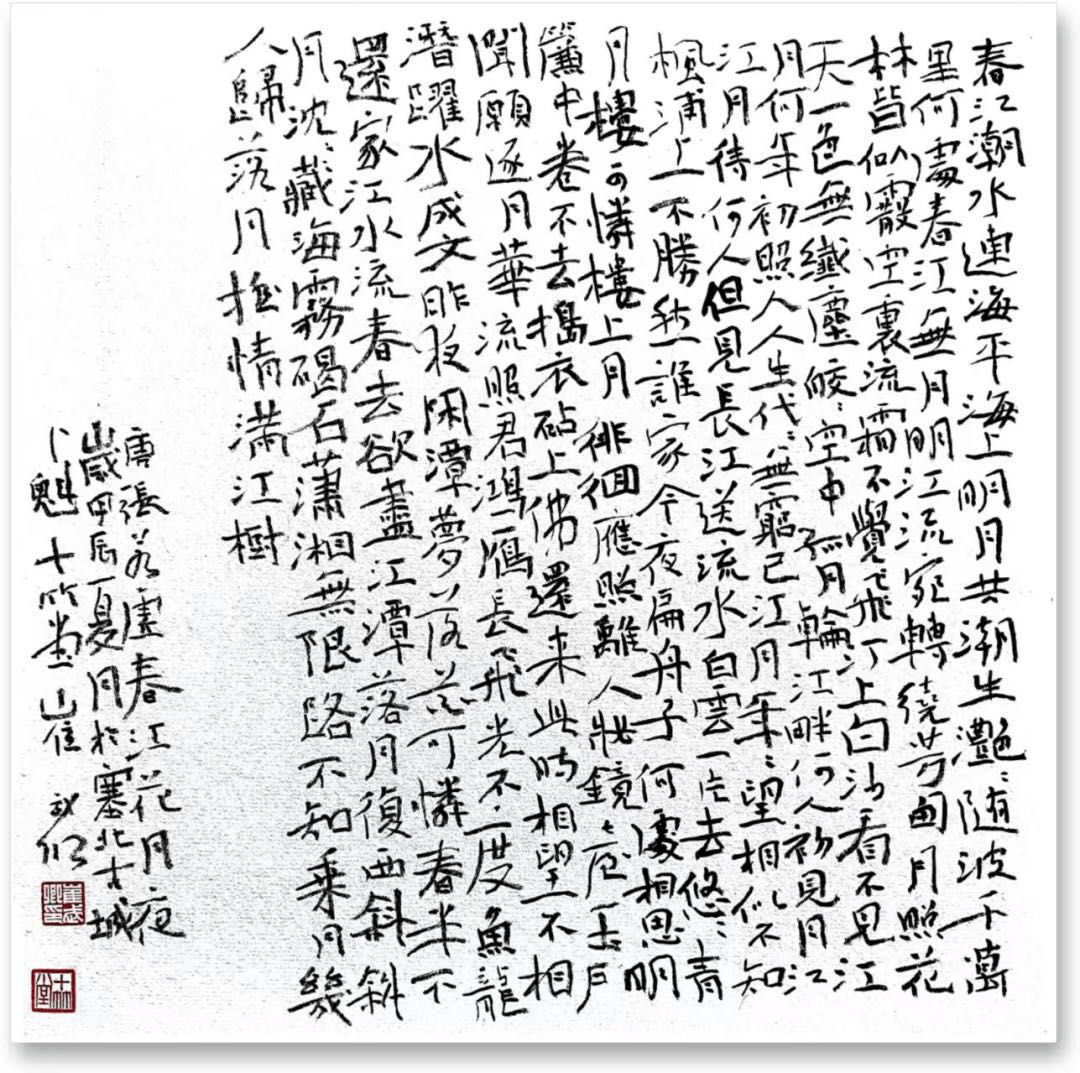 春江潮水連海平海上明月共潮生灩〻随波千萬
里何處春江無月明江流宛轉繞芳甸月照花
林皆似霰空裏流霜不覺飛汀上白沙看不見江
天一色無纖塵皎〻空中孤月輪江畔何人初見月江
月何年初照人人生代〻無窮已江月年〻望相似不知
江月待何人但見長江送流水白雲一片去悠〻青
楓浦上不勝愁誰家今夜扁舟子何處相思明
月樓可憐樓上月徘徊應照離人妝鏡臺玉戶
簾中卷不去搗衣砧上拂還来此時相望不相
聞願逐月華流照君鴻鴈長飛光不度魚龍
潛躍水成文昨夜閑潭夢落花可憐春半不
還家江水流春去欲盡江潭落月復西斜斜
月沈〻藏海霧碣石瀟湘無限路不知乘月幾
人歸落月摇情滿江樹
唐張若虛春江花月夜
歲甲辰夏月於塞北古城
卜魁十竹堂崔武卿
崔武卿印